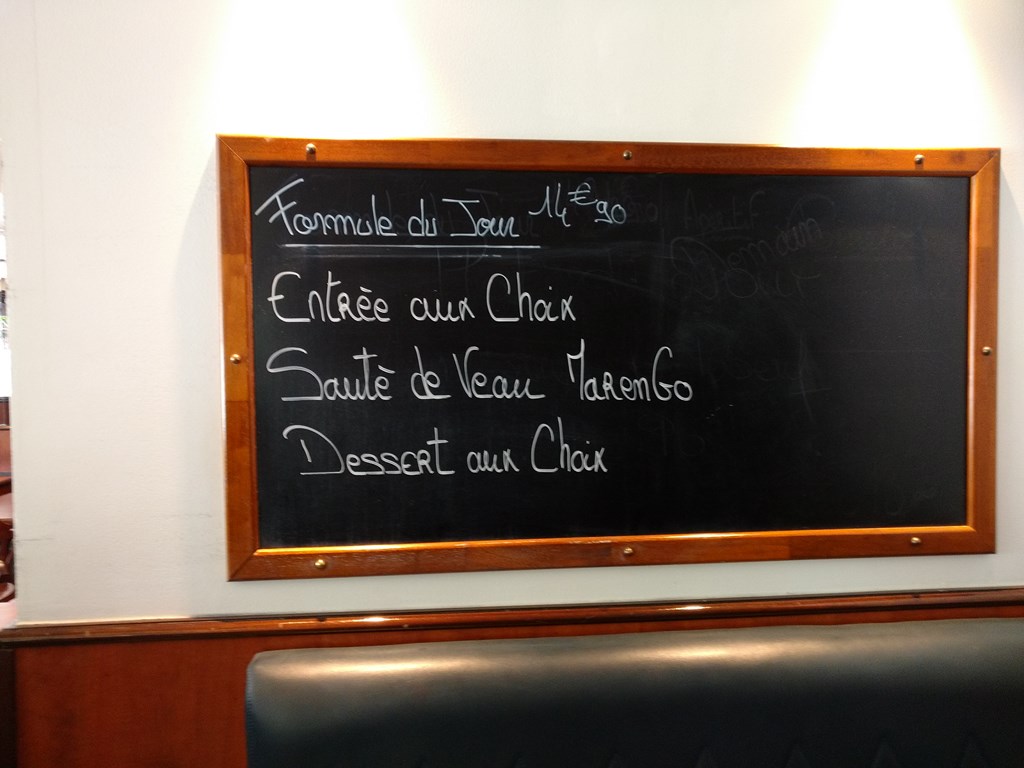 Formule du Jour 14€90
Entrèe aux Choix
Sautè de Veau Marengo
Dessert aux Choix